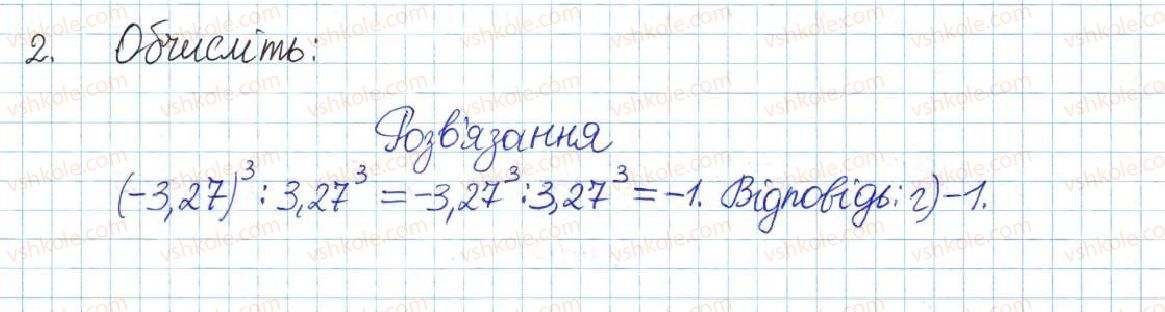 2. Обчисліть:
Розв'язання
(-3,27)³ : 3,27³ = -3,27³ : 3,27³ = -1. Відповідь: г) -1.